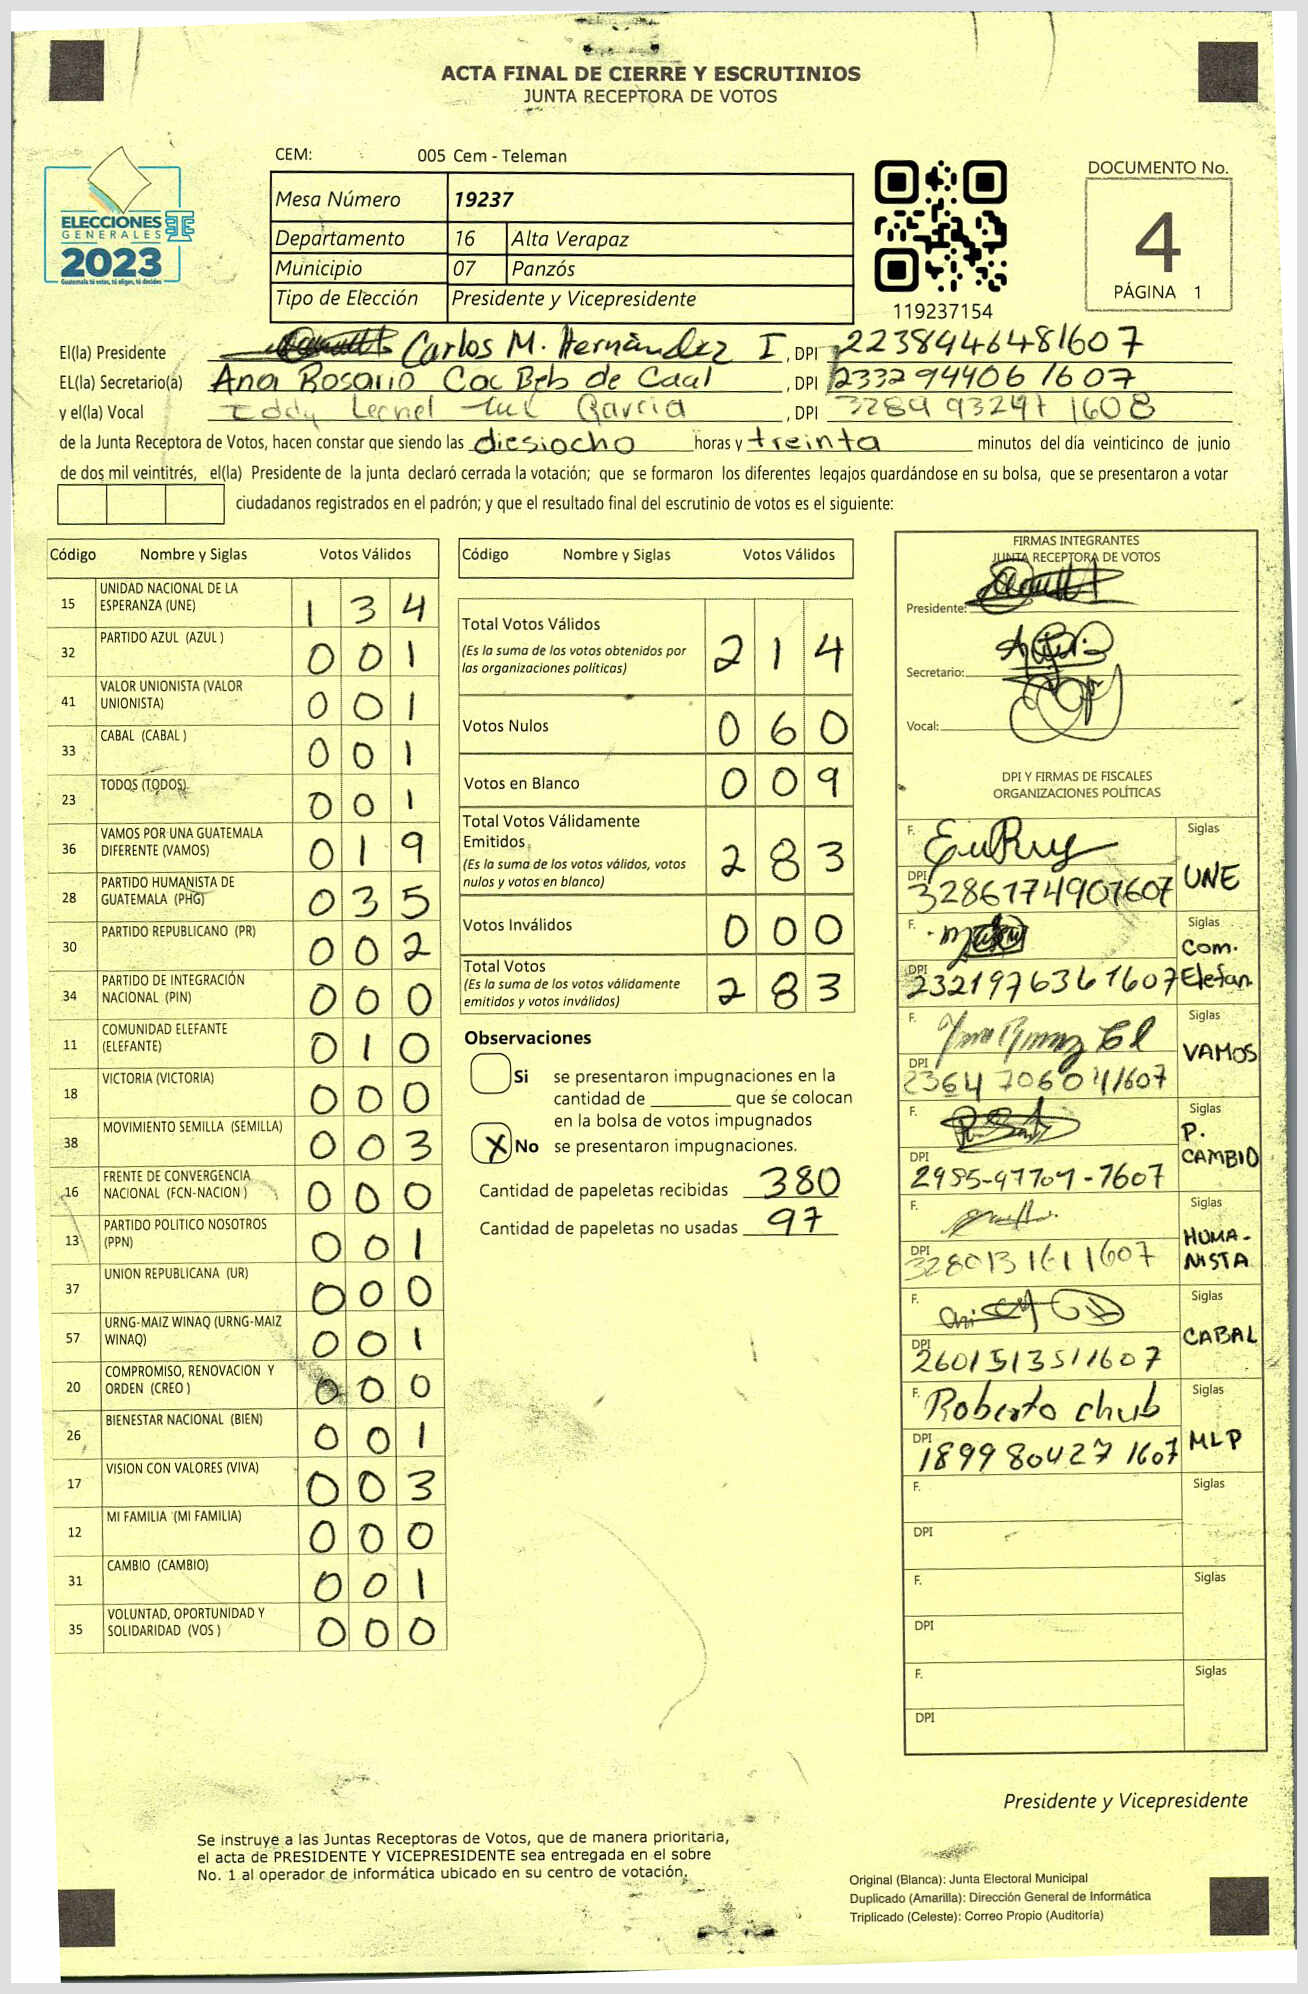 ACTA FINAL DE CIERRE Y ESCRUTINIOS
JUNTA RECEPTORA DE VOTOS
CEM: 005 Cem - Teleman
ELECCIONES
GENERALES
2023
Guatemala tú votas, tú eliges, tú decides
Mesa Número 19237
Departamento 16 Alta Verapaz
Municipio 07 Panzós
Tipo de Elección Presidente y Vicepresidente
119237154
DOCUMENTO No.
4
PÁGINA 1
El(la) Presidente Carlos M. Hernández I , DPI 2238944648 1607
EL(la) Secretario(a) Ana Rosario Coc Beb de Caal , DPI 233294406 1607
y el(la) Vocal Eddy Leonel Garcia , DPI 3289 93297 1608
de la Junta Receptora de Votos, hacen constar que siendo las diesiocho horas y treinta minutos del día veinticinco de junio
de dos mil veintitrés, el(la) Presidente de la junta declaró cerrada la votación; que se formaron los diferentes legajos guardándose en su bolsa, que se presentaron a votar
ciudadanos registrados en el padrón; y que el resultado final del escrutinio de votos es el siguiente:
Código Nombre y Siglas Votos Válidos
15 UNIDAD NACIONAL DE LA ESPERANZA (UNE) 1 3 4
32 PARTIDO AZUL (AZUL ) 0 0 1
41 VALOR UNIONISTA (VALOR UNIONISTA) 0 0 1
33 CABAL (CABAL ) 0 0 1
23 TODOS (TODOS) 0 0 1
36 VAMOS POR UNA GUATEMALA DIFERENTE (VAMOS) 0 1 9
28 PARTIDO HUMANISTA DE GUATEMALA (PHG) 0 3 5
30 PARTIDO REPUBLICANO (PR) 0 0 2
34 PARTIDO DE INTEGRACIÓN NACIONAL (PIN) 0 0 0
11 COMUNIDAD ELEFANTE (ELEFANTE) 0 1 0
18 VICTORIA (VICTORIA) 0 0 0
38 MOVIMIENTO SEMILLA (SEMILLA) 0 0 3
16 FRENTE DE CONVERGENCIA NACIONAL (FCN-NACION ) 0 0 0
13 PARTIDO POLITICO NOSOTROS (PPN) 0 0 1
37 UNION REPUBLICANA (UR) 0 0 0
57 URNG-MAIZ WINAQ (URNG-MAIZ WINAQ) 0 0 1
20 COMPROMISO, RENOVACION Y ORDEN (CREO ) 0 0 0
26 BIENESTAR NACIONAL (BIEN) 0 0 1
17 VISION CON VALORES (VIVA) 0 0 3
12 MI FAMILIA (MI FAMILIA) 0 0 0
31 CAMBIO (CAMBIO) 0 0 1
35 VOLUNTAD, OPORTUNIDAD Y SOLIDARIDAD (VOS ) 0 0 0
Código Nombre y Siglas Votos Válidos
Total Votos Válidos 2 1 4
(Es la suma de los votos obtenidos por
las organizaciones políticas)
Votos Nulos 0 6 0
Votos en Blanco 0 0 9
Total Votos Válidamente
Emitidos 2 8 3
(Es la suma de los votos válidos, votos
nulos y votos en blanco)
Votos Inválidos 0 0 0
Total Votos 2 8 3
(Es la suma de los votos válidamente
emitidos y votos inválidos)
Observaciones
Si se presentaron impugnaciones en la
cantidad de ________ que se colocan
en la bolsa de votos impugnados
X No se presentaron impugnaciones.
Cantidad de papeletas recibidas 380
Cantidad de papeletas no usadas 97
FIRMAS INTEGRANTES
JUNTA RECEPTORA DE VOTOS
Presidente:
Secretario:
Vocal:
DPI Y FIRMAS DE FISCALES
ORGANIZACIONES POLÍTICAS
F. Siglas
DPI 3286174907607 UNE
F. Siglas
DPI 2321976361607 Com. Elefan.
F. Siglas
DPI 2364 70604 1607 VAMOS
F. Siglas
DPI 2985-97709-1607 P. CAMBIO
F. Siglas
DPI 3280131611607 HUMA-NISTA
F. Siglas
DPI 2601513511607 CABAL
F. Roberto chub Siglas
DPI 1899 80427 1607 MLP
F. Siglas
DPI
F. Siglas
DPI
F. Siglas
DPI
Presidente y Vicepresidente
Se instruye a las Juntas Receptoras de Votos, que de manera prioritaria,
el acta de PRESIDENTE Y VICEPRESIDENTE sea entregada en el sobre
No. 1 al operador de informática ubicado en su centro de votación.
Original (Blanca): Junta Electoral Municipal
Duplicado (Amarilla): Dirección General de Informática
Triplicado (Celeste): Correo Propio (Auditoría)